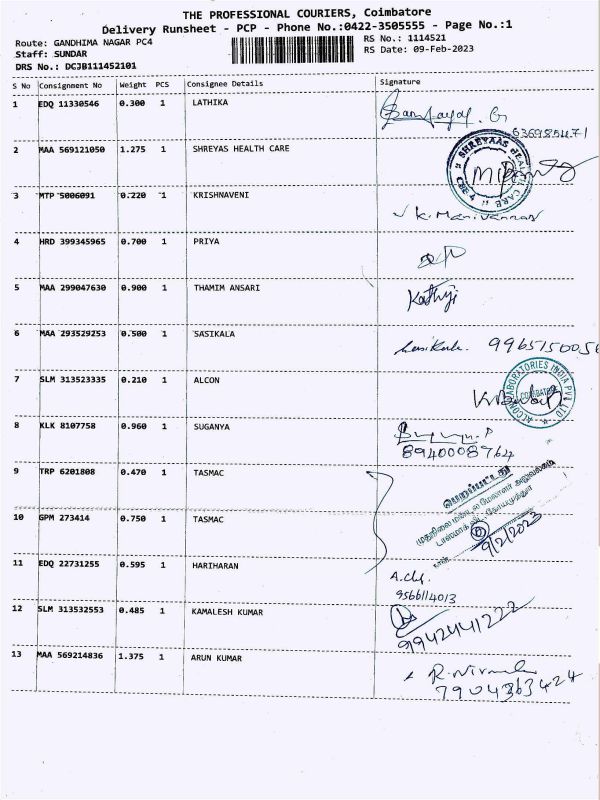 THE PROFESSIONAL COURIERS, Coimbatore
Delivery Runsheet - PCP - Phone No.:0422-3505555 - Page No.:1
Route: GANDHIMA NAGAR PC4
RS No.: 1114521
Staff: SUNDAR
RS Date: 09-Feb-2023
DRS No.: DCJB111452101
S No Consignment No Weight PCS Consignee Details Signature
1 EDQ 11330546 0.300 1 LATHIKA
2 MAA 569121050 1.275 1 SHREYAS HEALTH CARE
SHREYAAS HEALTH CARE
CBE-4
3 MTP 5006091 0.220 1 KRISHNAVENI
K. Manivannan
4 HRD 399345965 0.700 1 PRIYA
5 MAA 299047630 0.900 1 THAMIM ANSARI
Kathiji
6 MAA 293529253 0.500 1 SASIKALA
Sasikala. 9965150056
7 SLM 313523335 0.210 1 ALCON
ALCON LABORATORIES INDIA PVT LTD
COIMBATORE
8 KLK 8107758 0.960 1 SUGANYA
8940008764
9 TRP 6201808 0.470 1 TASMAC
பெறப்பட்டது
10 GPM 273414 0.750 1 TASMAC
9/2/2023
11 EDQ 22731255 0.595 1 HARIHARAN
9566114013
12 SLM 313532553 0.485 1 KAMALESH KUMAR
9942441222
13 MAA 569214836 1.375 1 ARUN KUMAR
7904363424